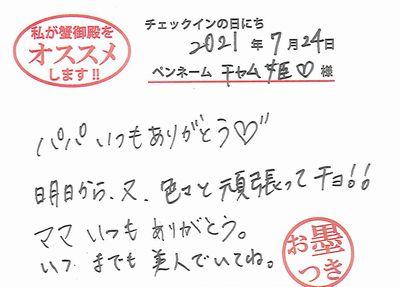 私が蟹御殿を
オススメ
します!!
チェックインの日にち
2021年7月24日
ペンネーム チャム姫♡様
パパいつもありがとう♡"
明日から、又、色々と頑張ってチョ!!
ママ いつも ありがとう。
いつ までも 美人でいてね。
お墨
つき